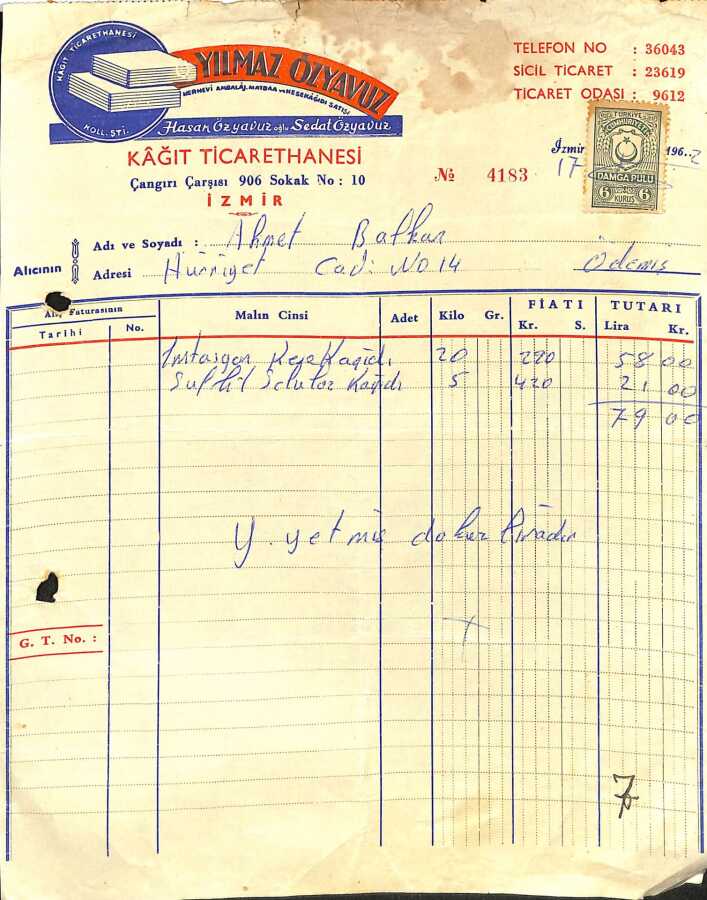 KÂĞIT TİCARETHANESİ
KOLL. ŞTİ.
YILMAZ ÖZYAVUZ
HERNEVİ AMBALÂJ, MATBAA ve KESEKÂĞIDI SATIŞI
Hasan Özyavuz oğlu Sedat Özyavuz
TELEFON NO : 36043
SİCİL TİCARET : 23619
TİCARET ODASI : 9612
KÂĞIT TİCARETHANESİ
Çangırı Çarşısı 906 Sokak No : 10
İZMİR
№ 4183
İzmir 17 196..2
TÜRKİYE
CUMHURİYETİ
DAMGA PULU
6 KURUŞ 6
Alıcının
Adı ve Soyadı : Ahmet Balkan
Adresi Hürriyet Cad. No 14 Ödemiş
Faturasının
Tarihi No. Malın Cinsi Adet Kilo Gr. FİATI Kr. S. TUTARI Lira Kr.
Kese Kağıdı 20 290 58 00
Kağıdı 5 420 21 00
79 00
Y. yetmiş dokuz liradır
G. T. No. :
7